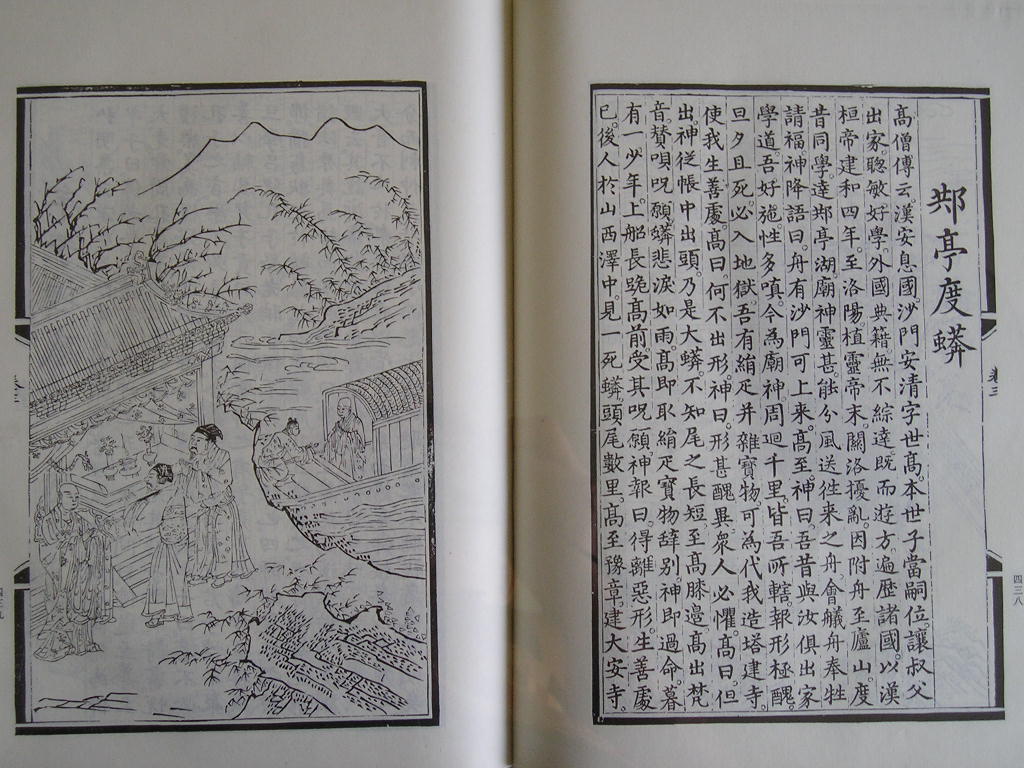 䢼亭度蟒
高僧傳云。漢安息國沙門安清字世高。本世子當嗣位。讓叔父
出家。聰敏好學。外國典籍無不綜達。既而遊方。遍歷諸國。以漢
桓帝建和四年。至洛陽。值靈帝末。關洛擾亂。因附舟至廬山。度
昔同學。達䢼亭湖。廟神靈甚。能分風送往來之舟。會艤舟奉牲
請福。神降語曰。舟有沙門可上來。高至。神曰。吾昔與汝俱出家
學道。吾好施。性多嗔。今為廟神。周迴千里。皆吾所轄。報形極醜。
旦夕且死。必入地獄。吾有絹疋并雜寶物。可為代我造塔建寺。
使我生善處。高曰。何不出形。神曰。形甚醜異。衆人必懼。高曰。但
出。神從帳中出頭。乃是大蟒。不知尾之長短。至高膝邊。高出梵
音贊唄呪願。蟒悲淚如雨。高即取絹疋寶物辭別。神即過命。暮
有一少年。上船長跪高前。受其呪願。神報曰。得離惡形。生善處
已。後人於山西澤中。見一死蟒。頭尾數里。高至豫章。建大安寺。
卷三
四三八
卷三
四三九